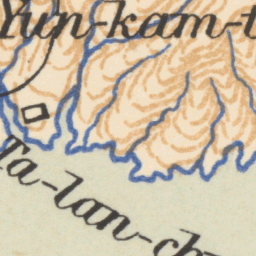 Yun-kam-t
Ta-lan-ch